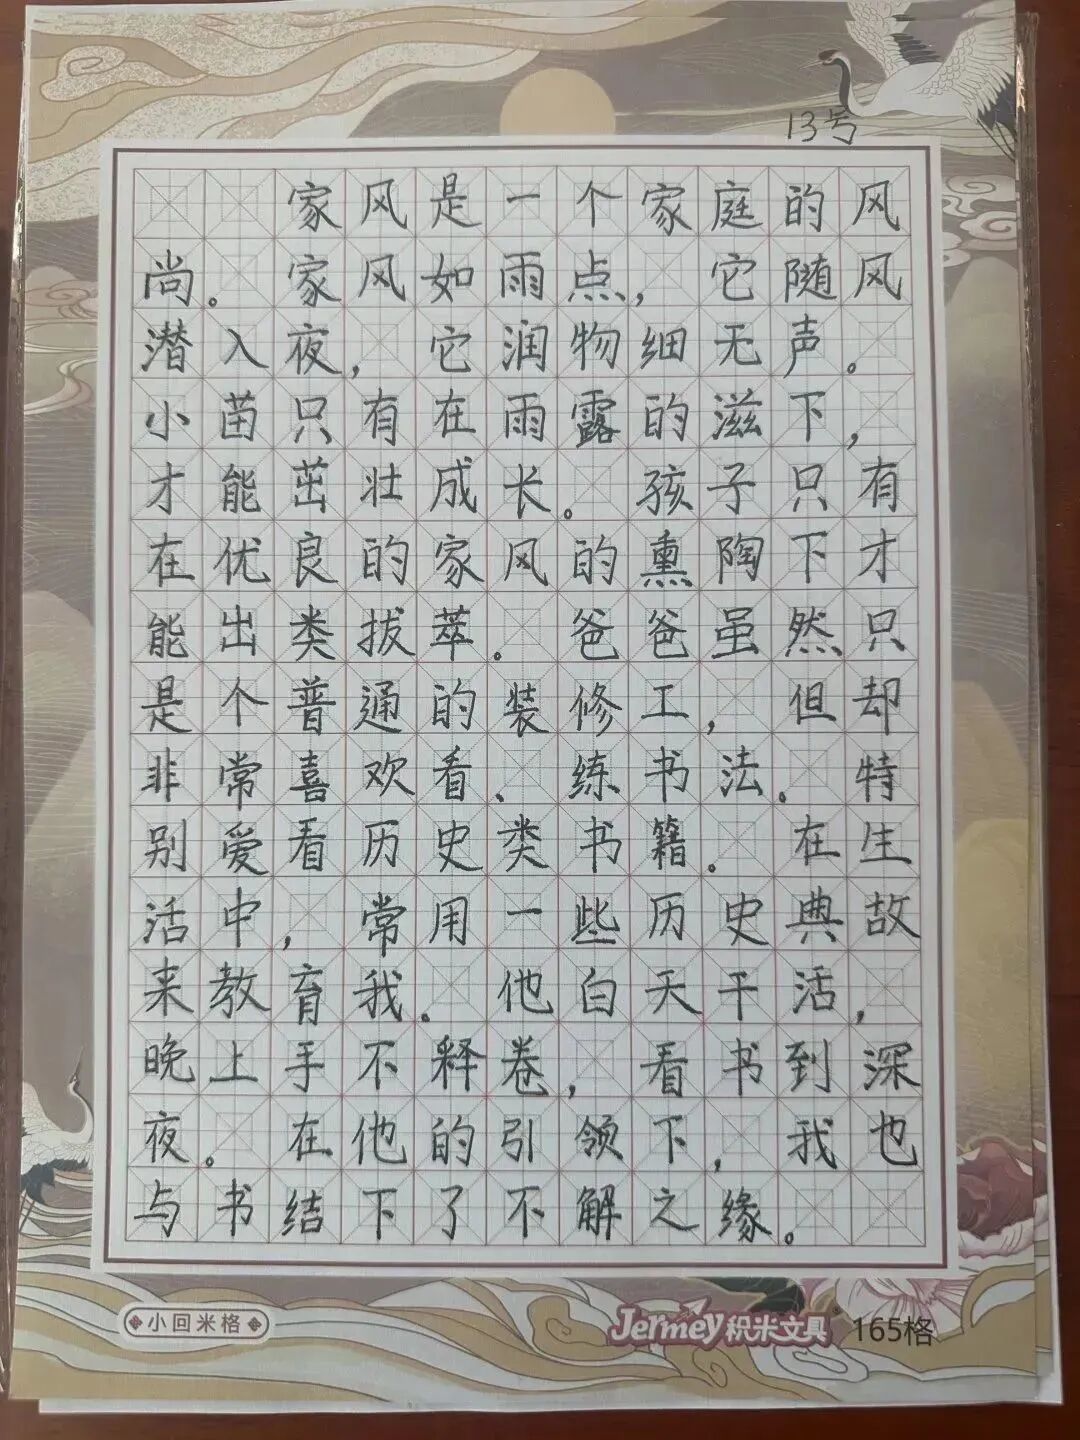 13号
家风是一个家庭的风
尚。家风如雨点，它随风
潜入夜，它润物细无声。
小苗只有在雨露的滋下，
才能茁壮成长。孩子只有
在优良的家风的熏陶下才
能出类拔萃。爸爸虽然只
是个普通的装修工，但却
非常喜欢看、练书法。特
别爱看历史类书籍。在生
活中，常用一些历史典故
来教育我。他白天干活，
晚上手不释卷，看书到深
夜。在他的引领下，我也
与书结下了不解之缘。
小回米格
Jermey积米文具 165格